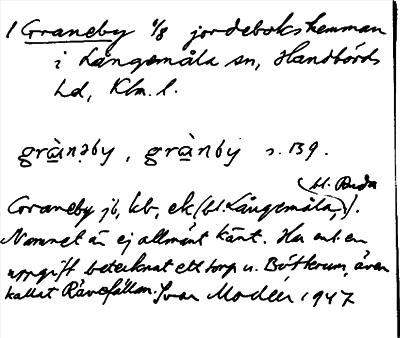 1 Graneby 1/8 jordebokshemman
i Långemåla sn, Handbörds
hd, Klm. l.
grànəby, grànby s. 139.
bl. Buda
Graneby jb, kb, ek (bl. Långemåla, ).
Namnet är ej allmänt känt. Har enl. en
uppgift betecknat ett torp u. Bötterum, även
kallat Rävefällan. Ivar Modéer 1947